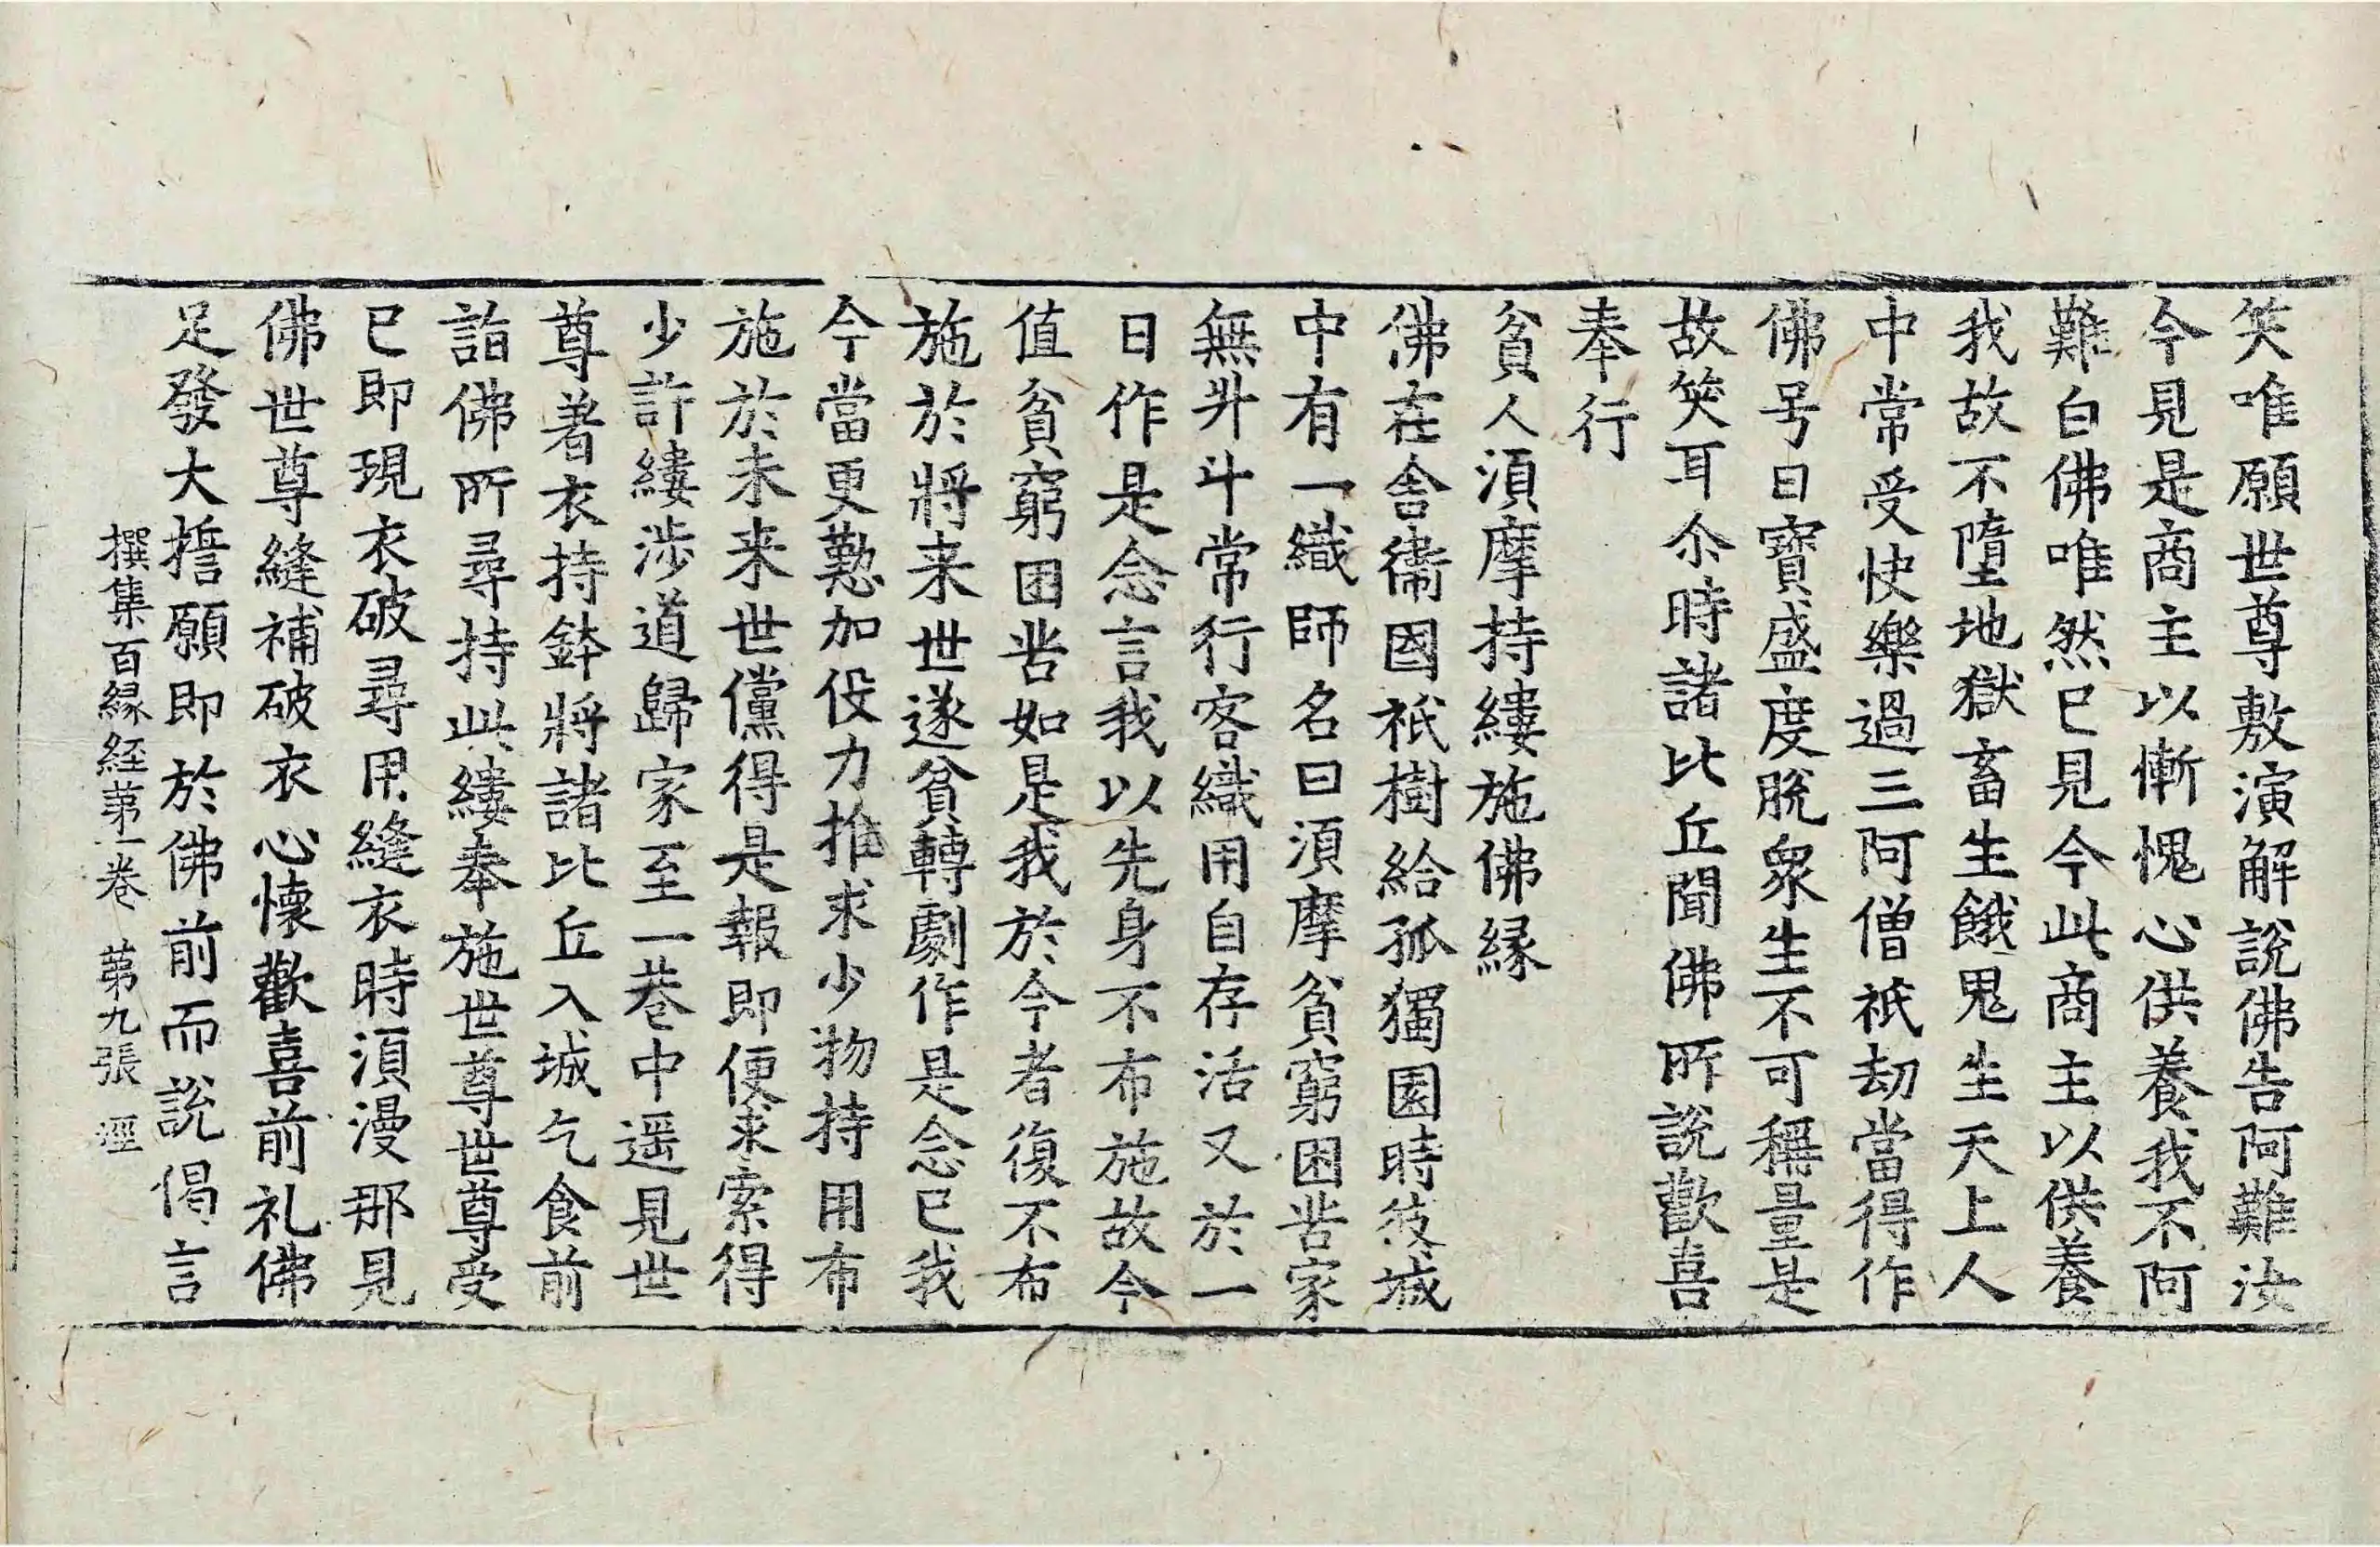 笑唯願世尊敷演解說佛告阿難汝
今見是商主以慚愧心供養我不阿
難白佛唯然已見今此商主以供養
我故不墮地獄畜生餓鬼生天上人
中常受快樂過三阿僧祇劫當得作
佛号曰寶盛度脫衆生不可稱量是
故笑耳尒時諸比丘聞佛所說歡喜
奉行
貧人湏摩持縷施佛緣
佛在舍衛國祇樹給孤獨園時彼城
中有一織師名曰湏摩貧窮困苦家
無升斗常行客織用自存活又於一
日作是念言我以先身不布施故今
值貧窮困苦如是我於今者復不布
施於將来世遂貧轉劇作是念已我
今當更懃加役力推求少物持用布
施於未来世儻得是報即便求索得
少許縷涉道歸家至一巷中遥見世
尊著衣持鉢將諸比丘入城乞食前
詣佛所尋持此縷奉施世尊世尊受
已即現衣破尋用縫衣時湏漫那見
佛世尊縫補破衣心懷歡喜前礼佛
足發大擔願即於佛前而說偈言
撰集百緣経第一卷 第九張 逕